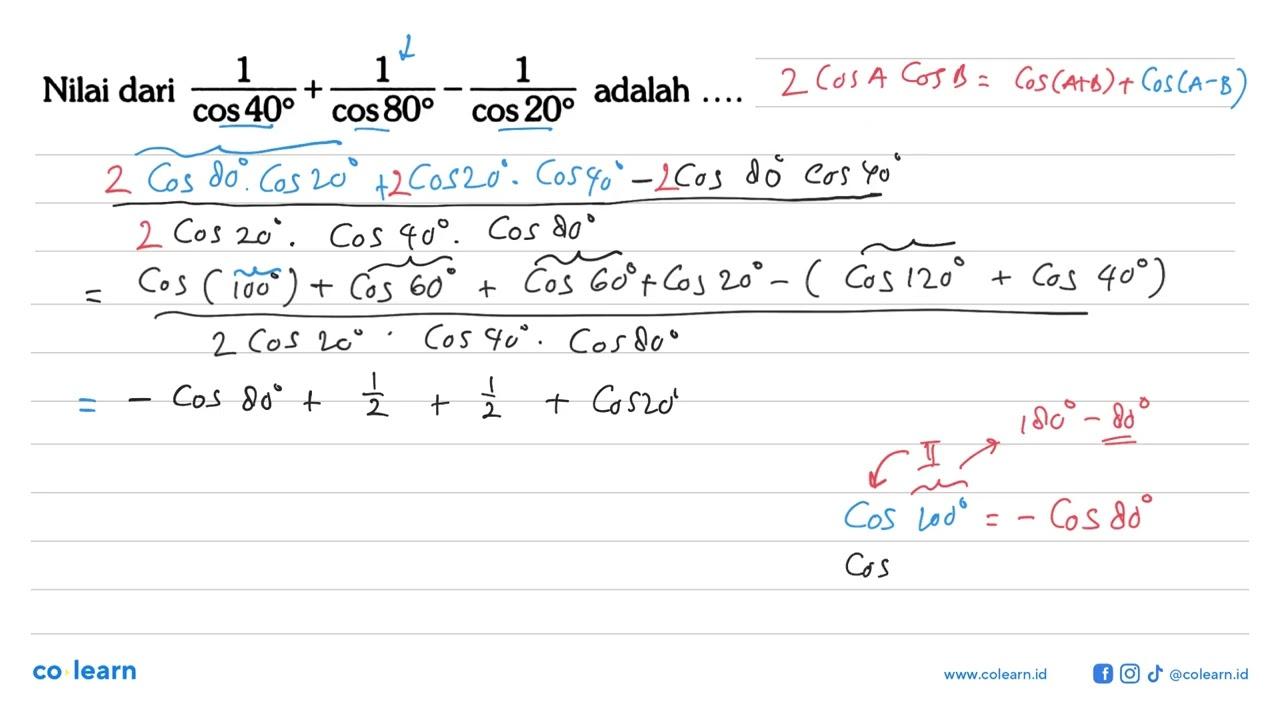 Nilai dari 1/cos 40° + 1/cos 80° − 1/cos 20° adalah ....
2 Cos A Cos B = Cos(A+B) + Cos(A−B)
2 Cos 80°. Cos 20° + 2 Cos 20°. Cos 40° − 2 Cos 80° Cos 40°
2 Cos 20°. Cos 40°. Cos 80°
= Cos (100°) + Cos 60° + Cos 60° + Cos 20° − ( Cos 120° + Cos 40°)
2 Cos 20° . Cos 40°. Cos 80°
= − Cos 80° + 1/2 + 1/2 + Cos 20°
180° − 80°
II
Cos 100° = − Cos 80°
Cos
co learn
www.colearn.id
@colearn.id